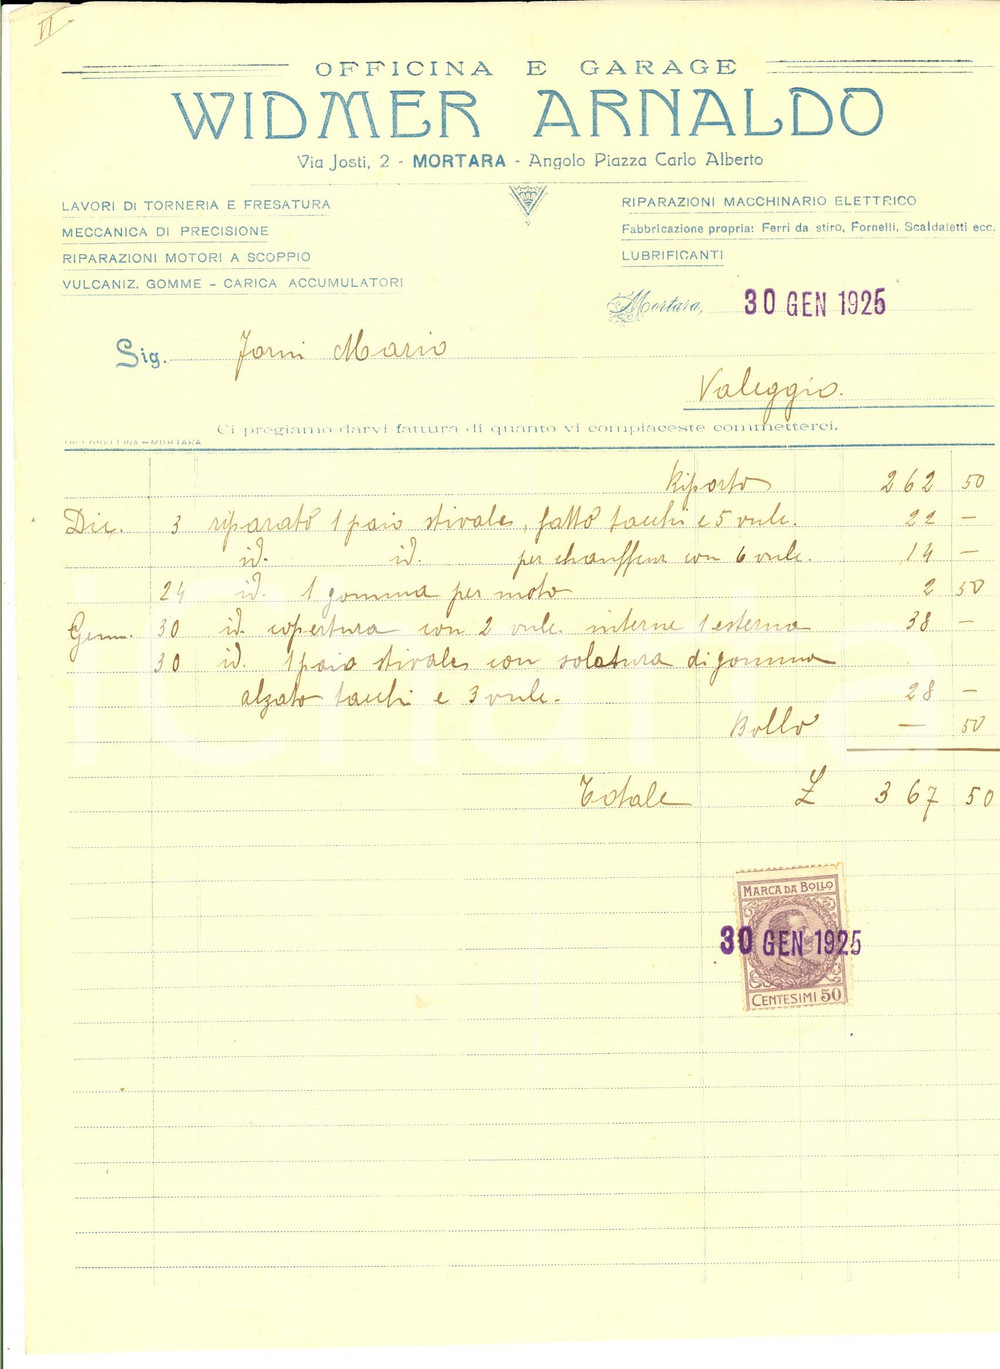 II
OFFICINA E GARAGE
WIDMER ARNALDO
Via Josti, 2 - MORTARA - Angolo Piazza Carlo Alberto
LAVORI DI TORNERIA E FRESATURA
MECCANICA DI PRECISIONE
RIPARAZIONI MOTORI A SCOPPIO
VULCANIZ. GOMME - CARICA ACCUMULATORI
RIPARAZIONI MACCHINARIO ELETTRICO
Fabbricazione propria: Ferri da stiro, Fornelli, Scaldaletti ecc.
LUBRIFICANTI
Mortara, 30 GEN 1925
Sig. Jorni Mario
Valeggio.
Ci pregiamo darvi fattura di quanto vi compiaceste commetterci.
MORTARA
Riporto 262 50
Dic. 3 riparato 1 paio stivales, fatto tacchi e 5 vulc. 22 —
id. id. per chauffeur con 6 vulc. 14 —
24 id. 1 gomma per moto 2 50
Genn. 30 id. copertura con 2 vulc. interne 1 esterna 38 —
30 id. 1 paio stivales con solatura di gomma
alzato tacchi e 3 vulc. 28 —
Bollo — 50
Totale £ 367 50
MARCA DA BOLLO
30 GEN 1925
CENTESIMI 50